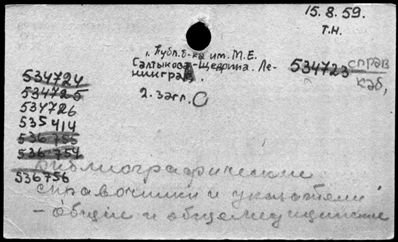 15.8.59.
Т.Н.
1. Публ. б-ка им. М.Е.
Салтыкова-Щедрина. Ле-
нинград.
2. загл.
534723 справ
каб.
534724
534725
534726
535414
536755
536754
536756
Библиографические
справочники и указатели
- общие и общемедицинские